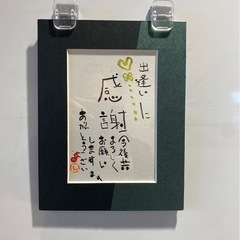 出逢いに
感謝
今後共
よろしく
お願い
します
ありがとうござい